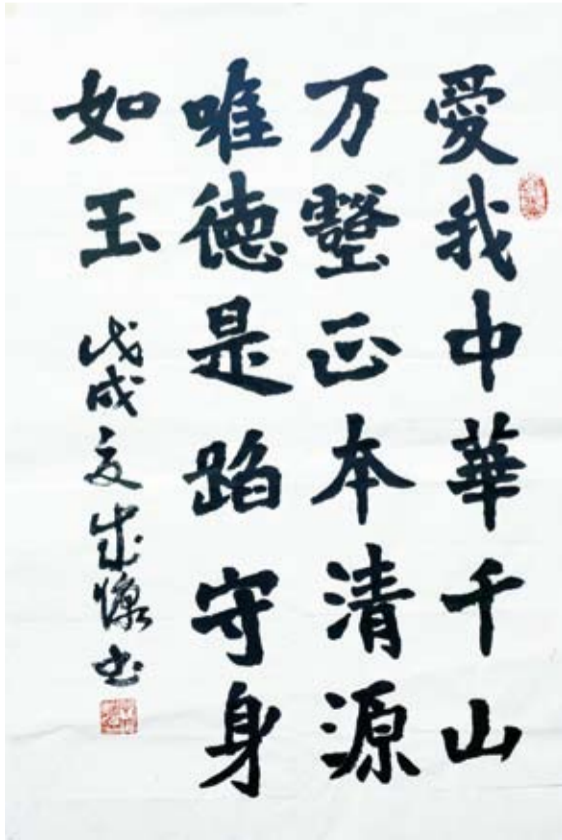 愛我中華千山
万壑正本清源
唯徳是蹈守身
如玉
戊戌夏成慷书